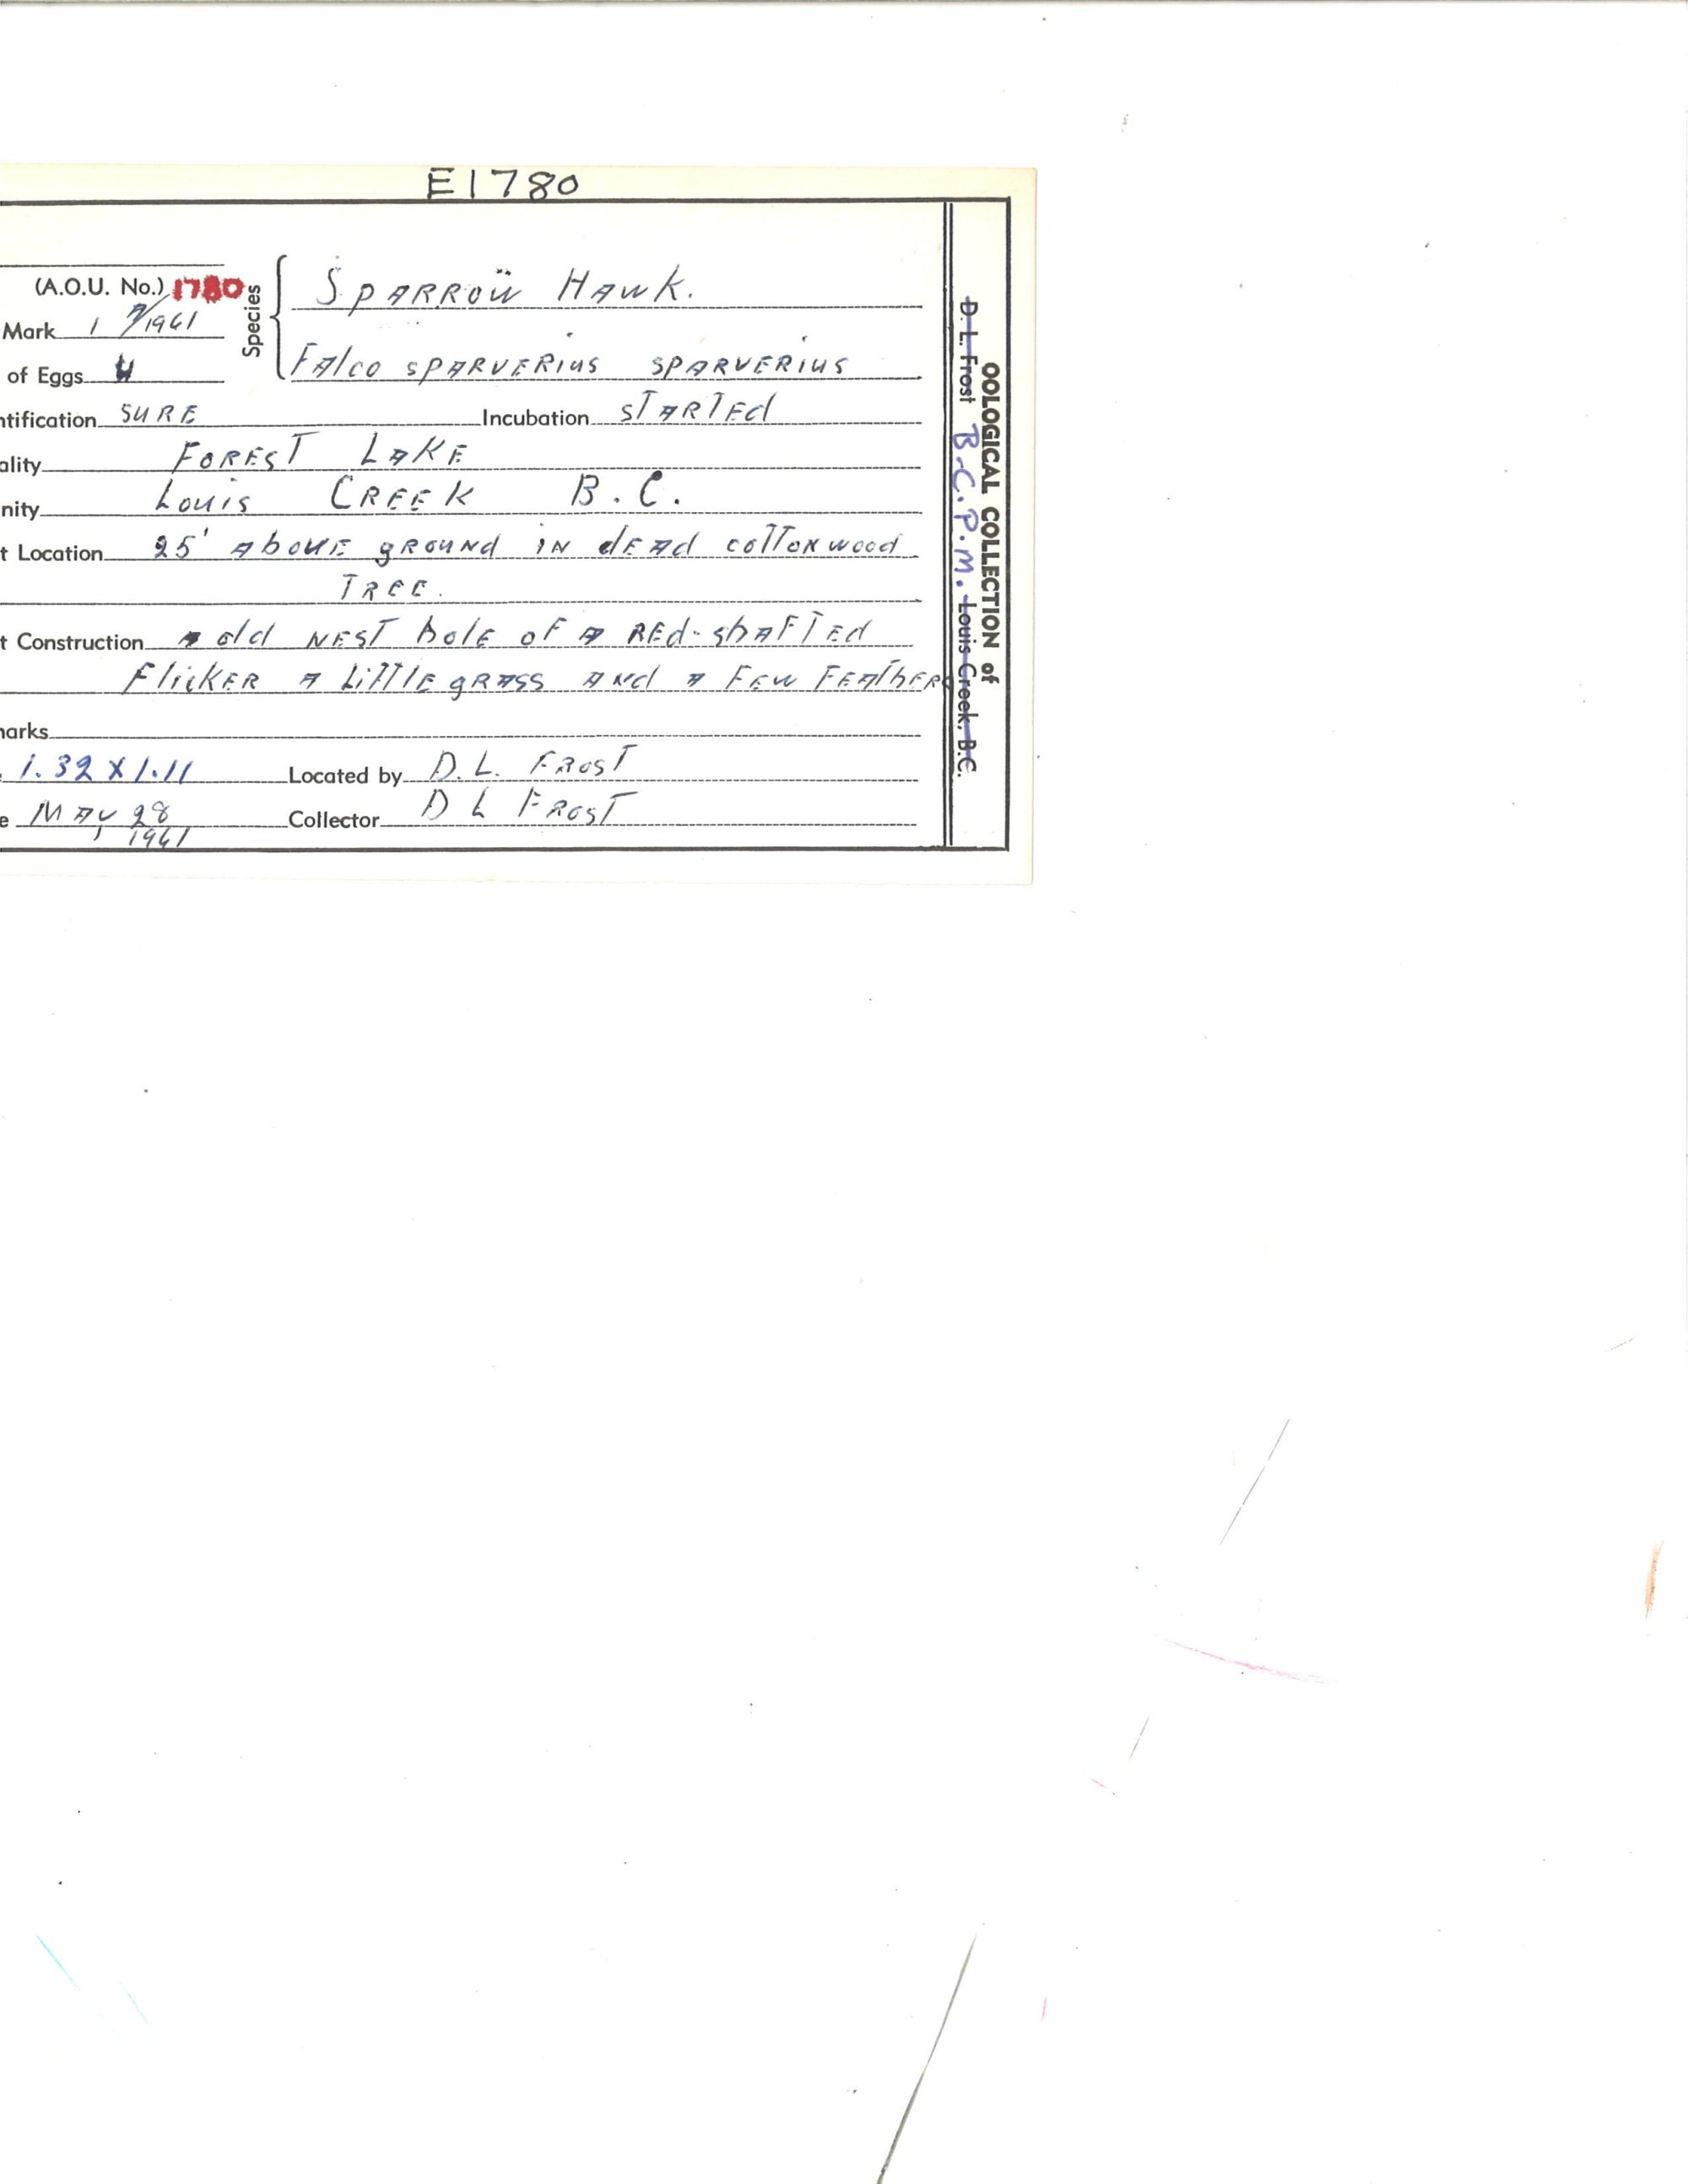 E1780
(A.O.U. No.) 1780
Species
SPARROW HAWK.
Mark 1 /1961
FAlco SPARVERIUS SPARVERIUS
of Eggs 4
ntification SURE Incubation STARTEd
ality FOREST LAKE
nity Louis CREEK B.C.
t Location 25' AboVE gROUNd iN dEAd coTToNwood
TREE.
t Construction old NEST holE oF A REd-shAFTEd
FlicKER A LiTTlE gRASS ANd A FEW FEAThERs
arks
1.32 X 1.11 Located by D.L. FROST
e MAY 28 Collector D L FROST
1961
OOLOGICAL COLLECTION of
D. L. Frost B.C.P.M. Louis Creek, B.C.